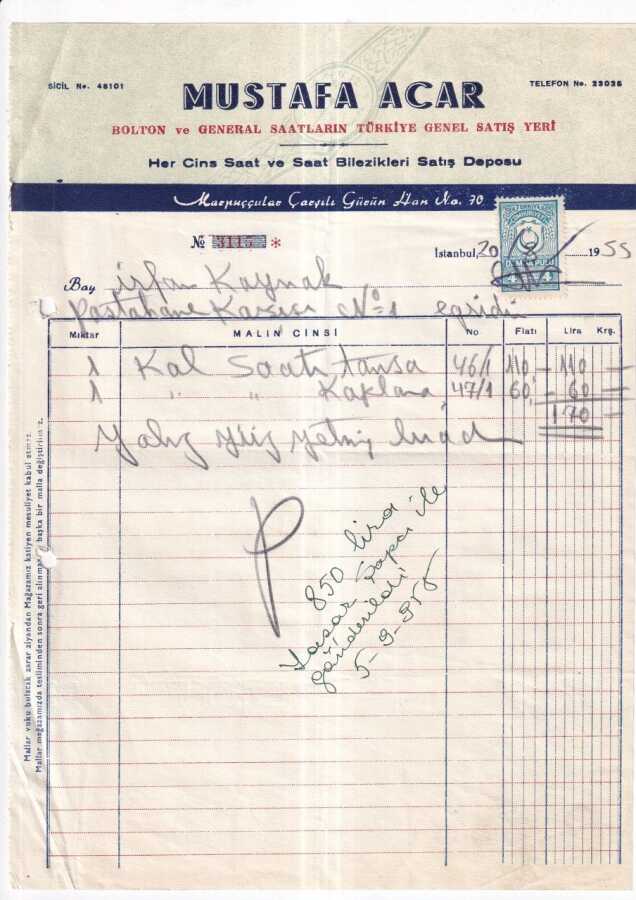 SİCİL No. 48101
TELEFON No. 23025
MUSTAFA ACAR
BOLTON ve GENERAL SAATLARIN TÜRKİYE GENEL SATIŞ YERİ
Her Cins Saat ve Saat Bilezikleri Satış Deposu
Marpuççular Çarşılı Gürün Han No. 70
№ 3115 *
İstanbul, 20 1955
TÜRKİYE CUMHURİYETİ
DAMGA PULU
4 4
Bay İrfan Kaynak
Pastahane Karşısı No 1 egridir
Miktar MALIN CİNSİ No Fiatı Lira Krş.
1 Kol Saatı tansa 46/1 110 – 110 –
1 " " Kaplama 47/1 60 – 60 –
170 –
Yalnız yüz yetmiş lirad
850 lira
Yaşar ile
gönderildi
5-9-955
Mallar vuku bulacak zarar ziyandan Mağazamız katiyen mesuliyet kabul etmez.
Mallar mağazamızda tesliminden sonra geri alınmaz, başka bir malla değiştirilmez.